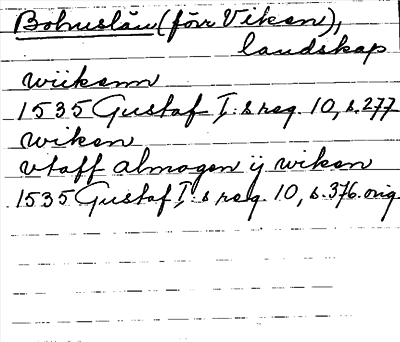 Bohuslän (förr Viken),
landskap
wiikenn
1535 Gustaf I:s reg. 10, s. 277
wiken
vtaff almogen ij wiken
1535 Gustaf I:s reg. 10, s. 376. orig.